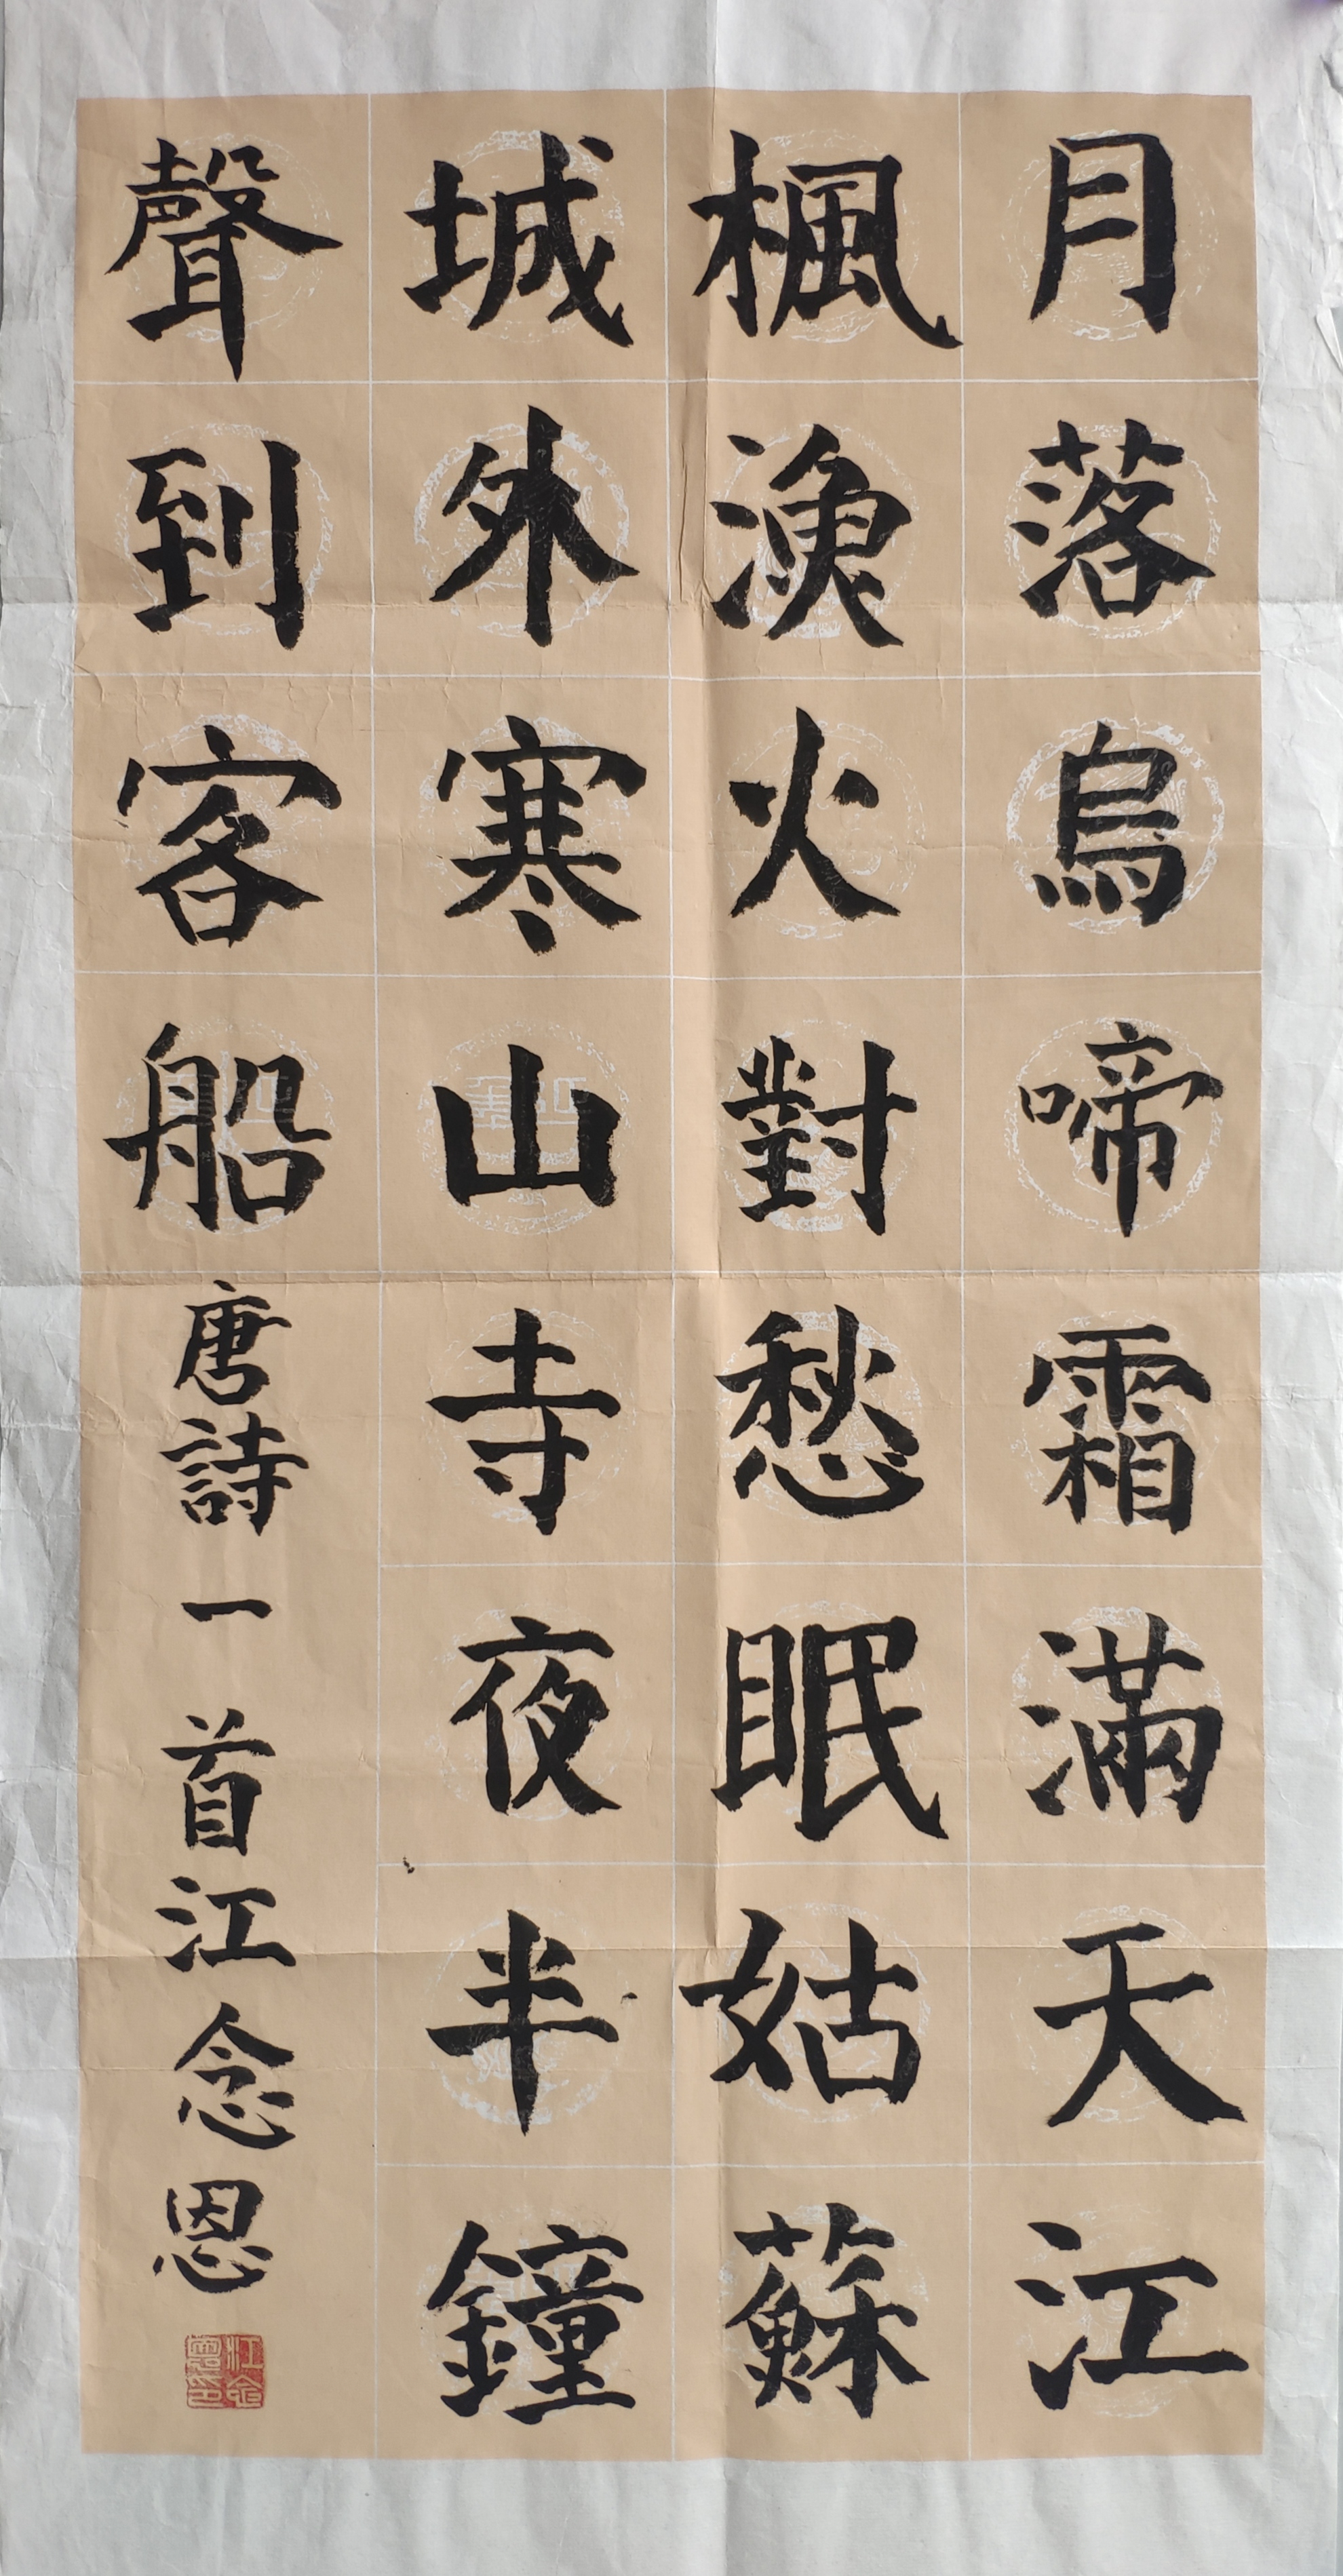 月落烏啼霜滿天江
楓漁火對愁眠姑蘇
城外寒山寺夜半鐘
聲到客船唐詩一首江念恩
江念恩印